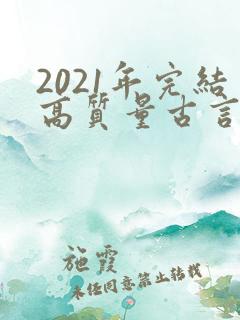 2021年完結
高質量古言
施霞
未經同意禁止轉載